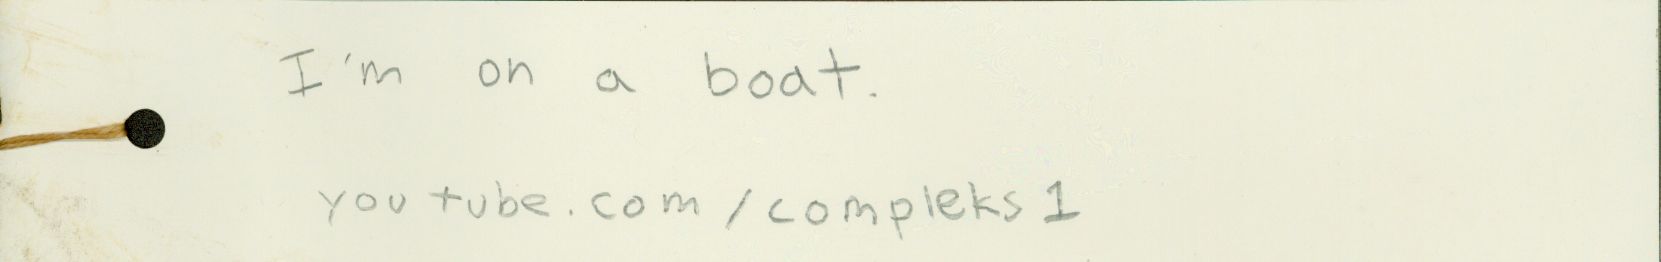 I'm on a boat.
youtube.com/compleks1